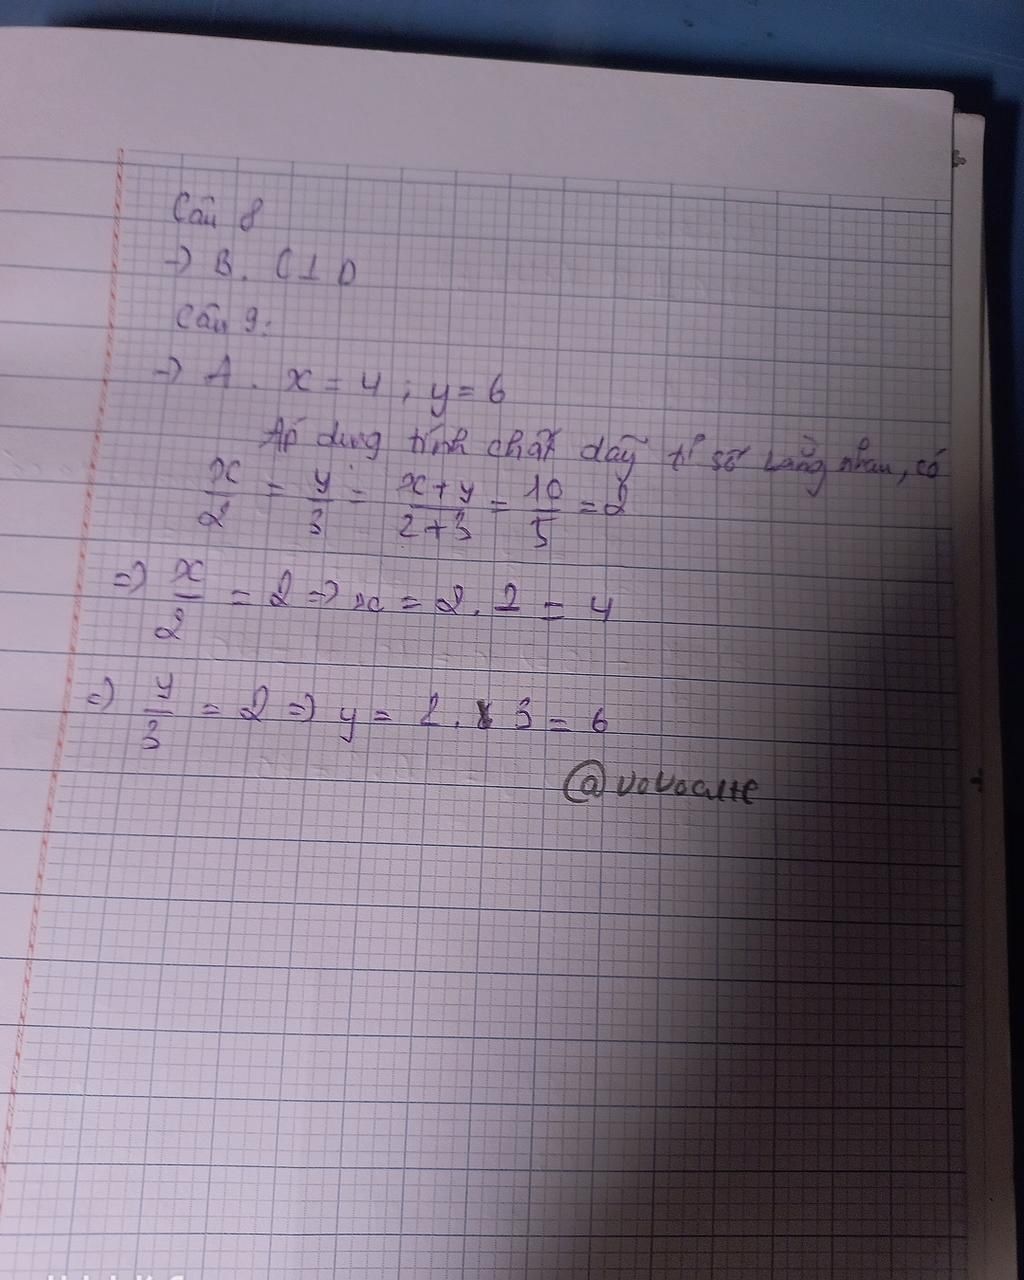 Câu 8
→ B. C ⊥ D
Câu 9:
→ A. x = 4 ; y = 6
Áp dụng tính chất dãy tỉ số bằng nhau, có
x/2 = y/3 = x+y/2+3 = 10/5 = 2
⇒ x/2 = 2 ⇒ x = 2.2 = 4
⇒ y/3 = 2 ⇒ y = 2.3 = 6
@vovocute